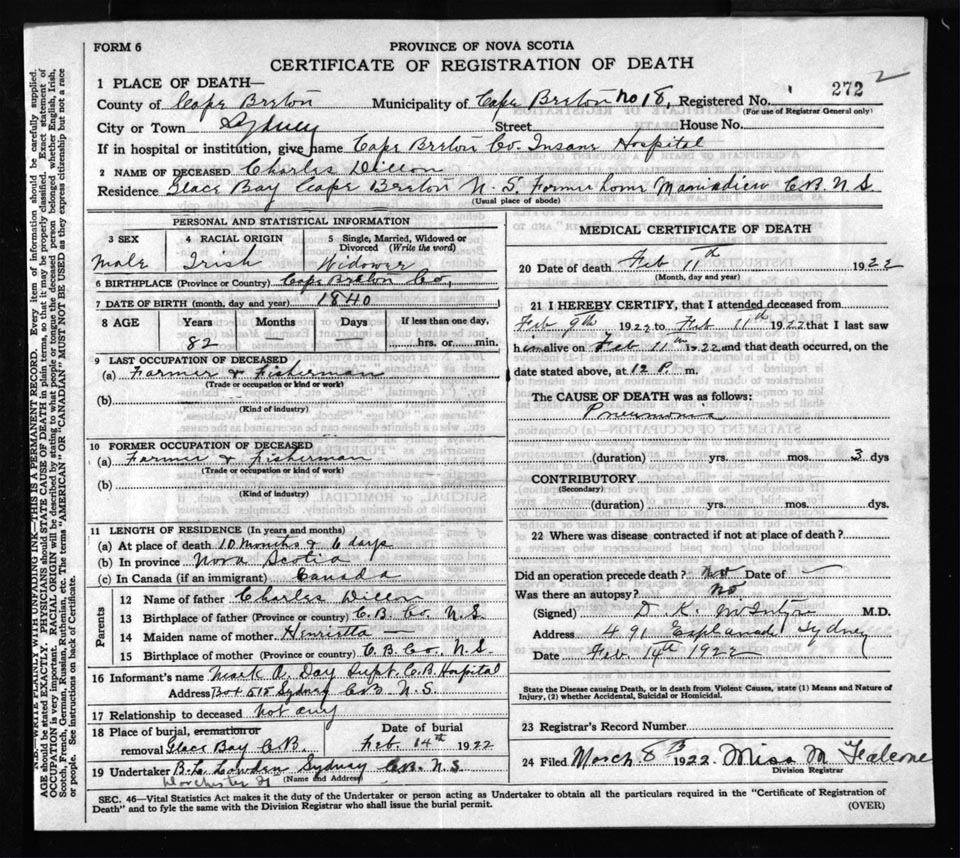 FORM 6
PROVINCE OF NOVA SCOTIA
CERTIFICATE OF REGISTRATION OF DEATH
272 2
1 PLACE OF DEATH—
County of Cape Breton Municipality of Cape Breton No 18, Registered No.
(For use of Registrar General only)
City or Town Sydney Street House No.
If in hospital or institution, give name Cape Breton Co. Insane Hospital
2 NAME OF DECEASED Charles Dillon
Residence Glace Bay Cape Breton N. S. Former home Maniadieu C.B. N.S
(Usual place of abode)
PERSONAL AND STATISTICAL INFORMATION
3 SEX 4 RACIAL ORIGIN 5 Single, Married, Widowed or Divorced (Write the word)
Male Irish Widower
6 BIRTHPLACE (Province or Country) Cape Breton Co,
7 DATE OF BIRTH (month, day and year) 1840
8 AGE Years Months Days If less than one day,
82 — — hrs. or min.
9 LAST OCCUPATION OF DECEASED
(a) Farmer & Fisherman
(Trade or occupation or kind or work)
(b)
(Kind of industry)
10 FORMER OCCUPATION OF DECEASED
(a) Farmer & Fisherman
(Trade or occupation or kind or work)
(b)
(Kind of industry)
11 LENGTH OF RESIDENCE (In years and months)
(a) At place of death 10 months & 6 days
(b) In province Nova Scotia
(c) In Canada (if an immigrant) Canada
Parents
12 Name of father Charles Dillon
13 Birthplace of father (Province or country) C.B. Co. N.S.
14 Maiden name of mother Henrietta —
15 Birthplace of mother (Province or country) C.B. Co. N.S.
16 Informant's name Mark A. Day Supt. C.B. Hospital
Address Box 518 Sydney C.B. N.S.
17 Relationship to deceased Not any
18 Place of burial, cremation or removal Glace Bay C.B. Date of burial Feb. 14th 1922
19 Undertaker B. L. Lowden Sydney C.B. N.S.
(Name and Address)
Dorchester St
MEDICAL CERTIFICATE OF DEATH
20 Date of death Feb 11th 1922
(Month, day and year)
21 I HEREBY CERTIFY, that I attended deceased from
Feb 9th 1922 to Feb 11th 1922 that I last saw
him alive on Feb 11th 1922 and that death occurred, on the
date stated above, at 12 P. m.
The CAUSE OF DEATH was as follows:
Pneumonia
(duration) yrs. mos. 3 dys
CONTRIBUTORY
(Secondary)
(duration) yrs. mos. dys.
22 Where was disease contracted if not at place of death?
Did an operation precede death? No Date of —
Was there an autopsy? No
(Signed) D. K. McIntyre M.D.
Address 491 Esplanade Sydney
Date Feb 14th 1922
State the Disease causing Death, or in death from Violent Causes, state (1) Means and Nature of
Injury, (2) whether Accidental, Suicidal or Homicidal.
23 Registrar's Record Number
24 Filed March 8th 1922. Miss M Falcone
Division Registrar
SEC. 46—Vital Statistics Act makes it the duty of the Undertaker or person acting as Undertaker to obtain all the particulars required in the "Certificate of Registration of
Death" and to fyle the same with the Division Registrar who shall issue the burial permit. (OVER)
N.B.—WRITE PLAINLY, WITH UNFADING INK—THIS IS A PERMANENT RECORD. Every item of information should be carefully supplied.
AGE should be stated EXACTLY. PHYSICIANS should STATE CAUSE OF DEATH in plain terms, so that it may be properly classified. Exact statement of
OCCUPATION is very important. RACIAL ORIGIN will be described by stating to what people or tongue the deceased person belonged whether English, Irish,
Scotch, French, German, Russian, Ruthenian, etc. The terms "AMERICAN" OR "CANADIAN" MUST NOT BE USED as they express citizenship but not a race
or people. See instructions on back of Certificate.